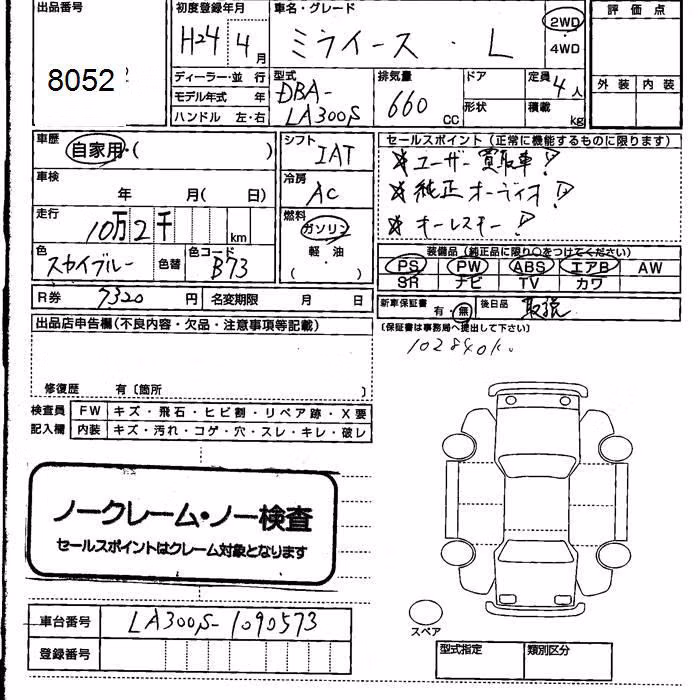 出品番号
8052
初度登録年月
H24 4月
車名・グレード
ミライース・L
2WD
4WD
評価点
外装 内装
ディーラー・並 行
モデル年式 年
ハンドル 左・右
型式
DBA-
LA300S
排気量
660 CC
ドア
形状
定員 4人
積載 kg
車歴
自家用・( )
シフト
IAT
セールスポイント(正常に機能するものに限ります)
☆ユーザー買取車!
☆純正オーディオ!
☆キーレスキー!
車検
年 月( 日)
冷房
AC
走行
10万2千 km
燃料
ガソリン
軽・油
( )
色
スカイブルー
色替
色コード
B73
装備品(純正品に限り○をつけてください)
PS PW ABS エアB AW
SR ナビ TV カワ
R券 7320円
名変期限 月 日
新車保証書
有・無
後日品
取説
(保証書は事務局へ提出して下さい)
102840k.
出品店申告欄(不良内容・欠品・注意事項等記載)
修復歴 有〔箇所 〕
検査員
記入欄
FW キズ・飛石・ヒビ割・リペア跡・X要
内装 キズ・汚れ・コゲ・穴・スレ・キレ・破レ
ノークレーム・ノー検査
セールスポイントはクレーム対象となります
車台番号 LA300S-1090573
登録番号
スペア
型式指定 類別区分